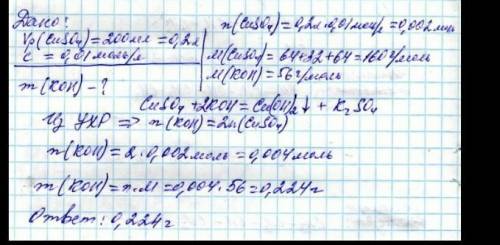 Дано:
Vр(CuSO₄)=200мл=0,2л
c = 0,01моль/л
m(KOH) - ?
n(CuSO₄)=0,2л·0,01моль/л=0,002моль
M(CuSO₄)=64+32+64=160г/моль
M(KOH)=56г/моль
CuSO₄+2KOH=Cu(OH)₂↓+K₂SO₄
Из УХР => n(KOH)=2n(CuSO₄)
n(KOH)=2·0,002моль=0,004моль
m(KOH)=n·M=0,004·56=0,224г
Ответ: 0,224г